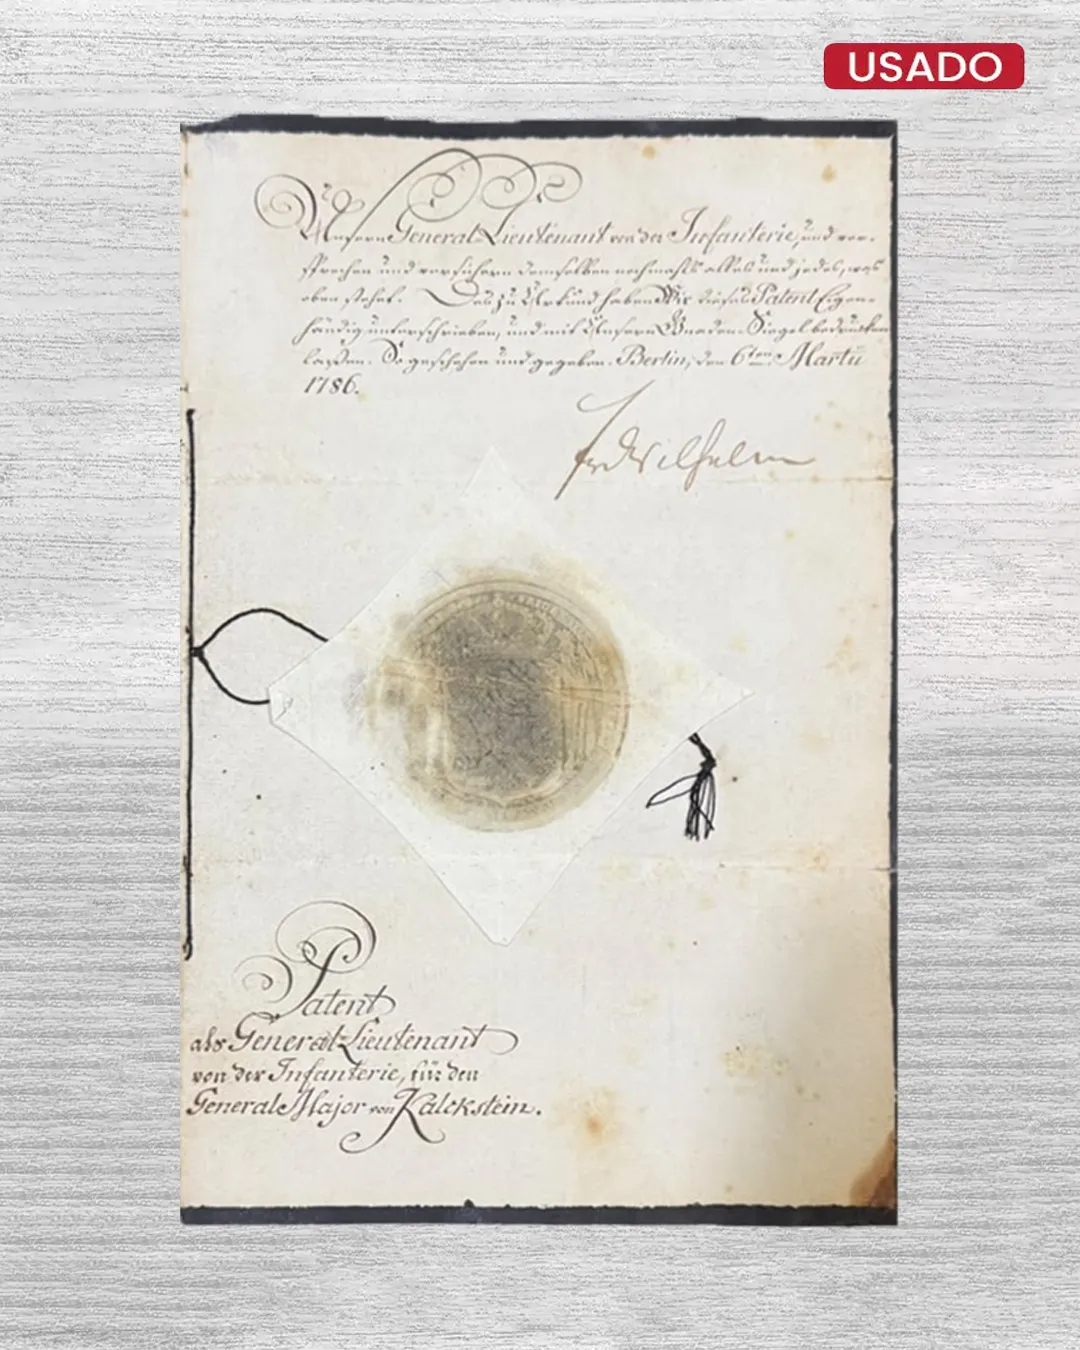 USADO
Unsern General-Lieutenant von der Infanterie, und ver-
sprechen und versichern demselben nochmahls alles und jedes, was
oben stehet. Das zu Uhrkund haben Wir dieses Patent Eigen-
händig unterschrieben, und mit Unserm Gnaden-Siegel bedrucken
laßen. So geschehen und gegeben. Berlin, den 6ten Martii
1786.
FrdWilhelm
Patent
als General-Lieutenant
von der Infanterie, für den
General-Major von Kalckstein.